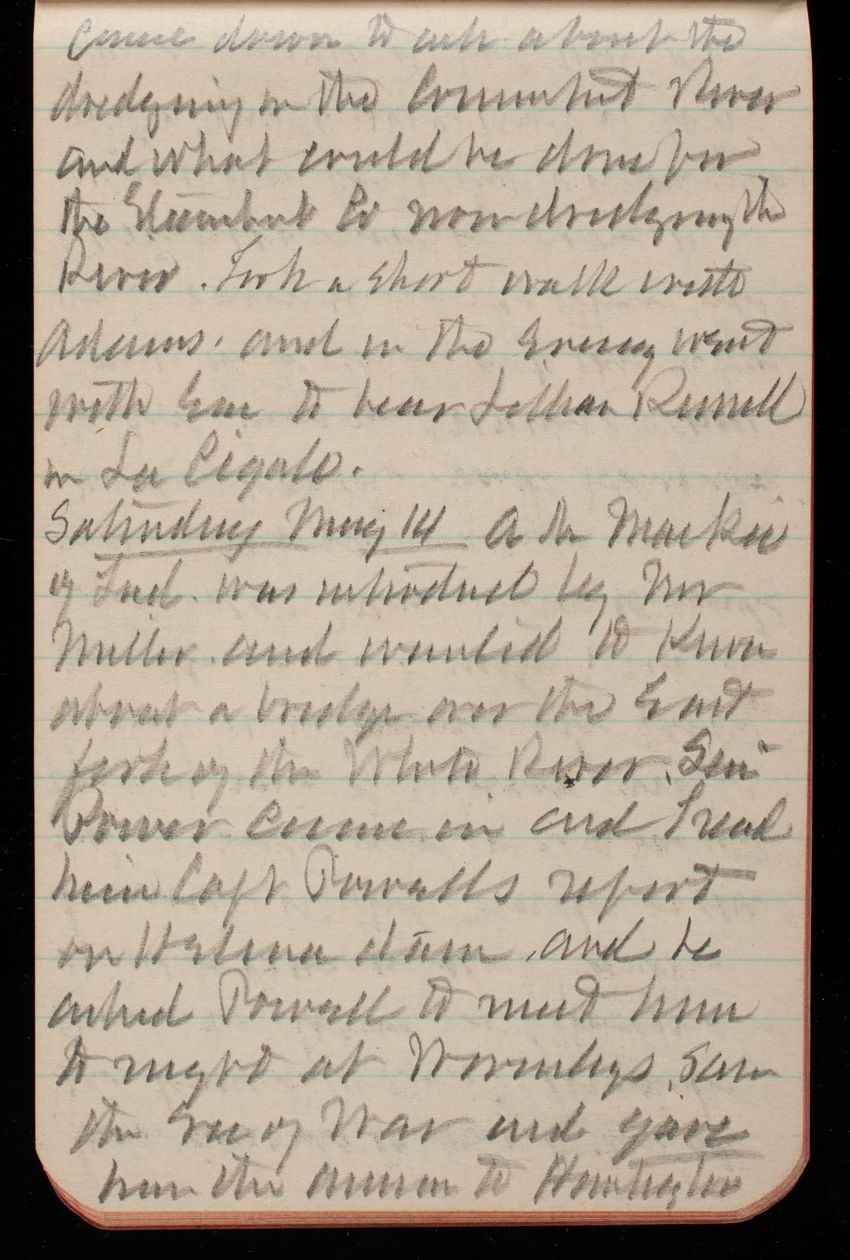 came down to ask about the
dredging in the Connecticut River
and what could be done for
the Steamboat Co now dredging the
River. Took a short walk with
Adams. and in the Evening went
with to hear Lillian Russell
in La Cigale.
Saturday May 14 A Mr Mackie
of Ind. was introduced by Mr
Miller. and wanted to know
about a bridge over the East
fork of the White River. Sen
Power came in and I read
him Capt Powells report
on Helena dam, and he
asked Powell to meet him
to night at Wormleys. Saw
the Sec of War and gave
him the answer to